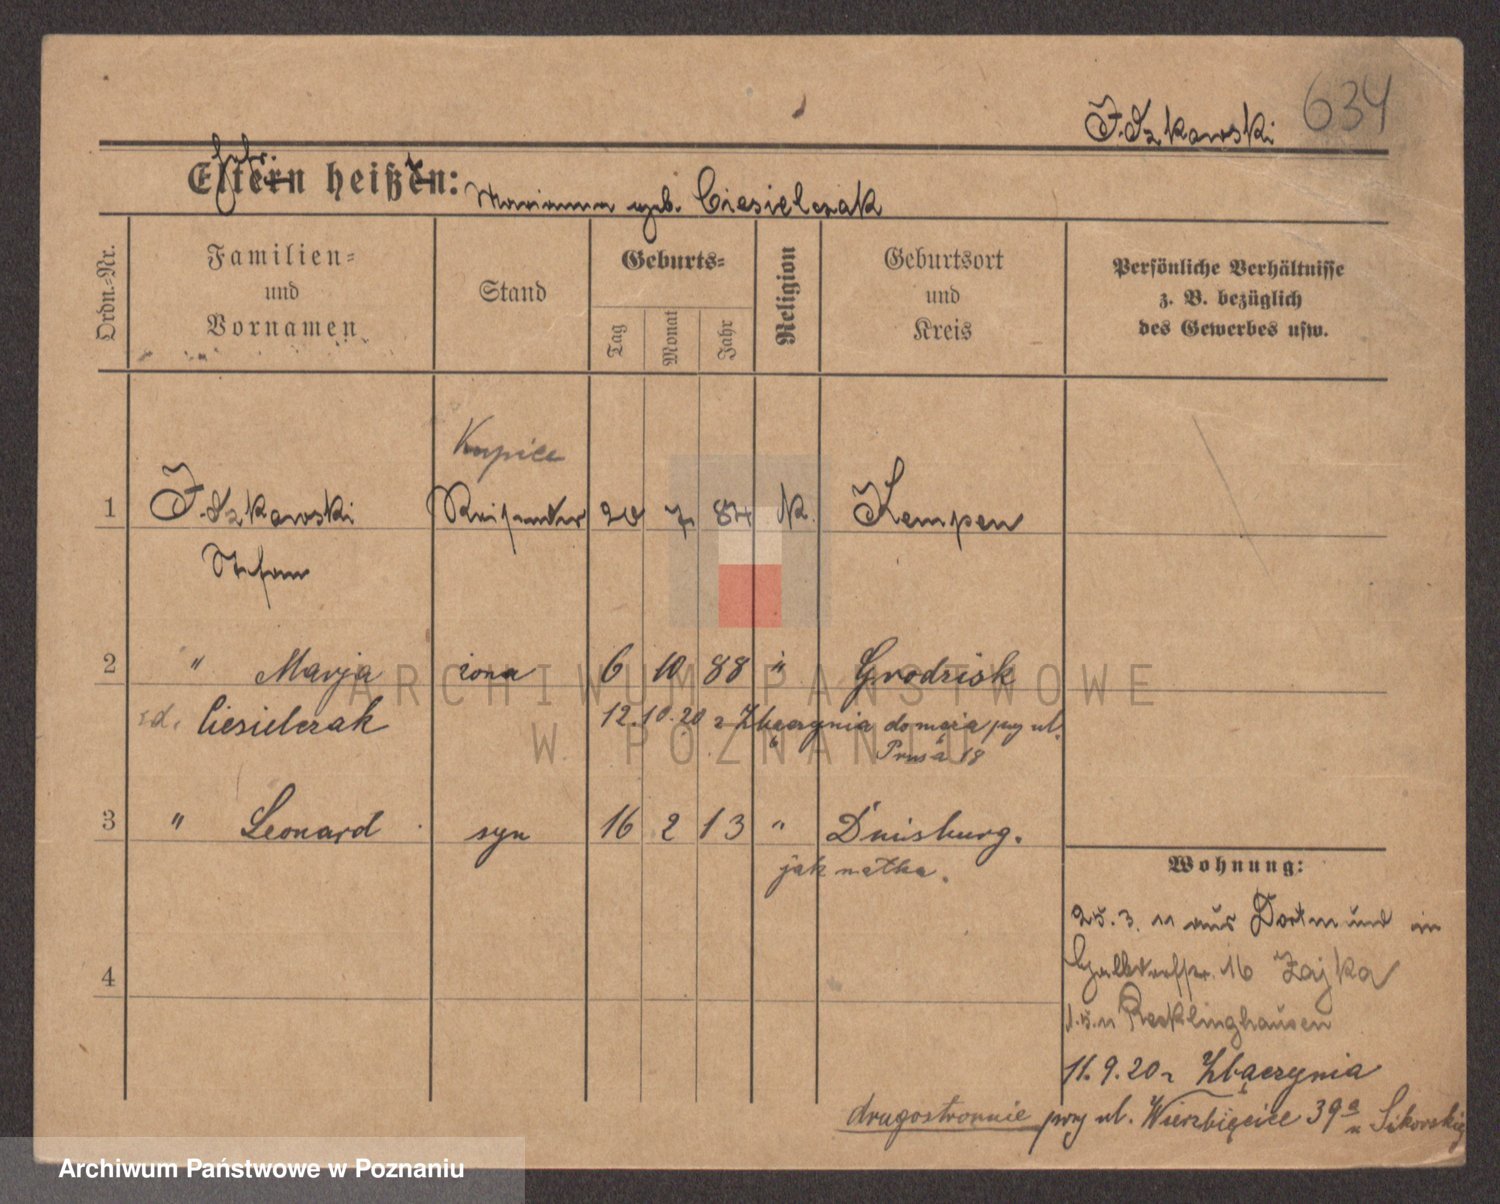 634
Iżykowski
Eltern heißen:
Ehefr. Marianna geb. Ciesielczak
Ordn.-Nr.
Familien-
und
Vornamen
Stand
Geburts-
Tag
Monat
Jahr
Religion
Geburtsort
und
Kreis
Persönliche Verhältnisse
z. B. bezüglich
des Gewerbes usw.
Kupiec
1 Reisender 20 7 84 k. Kempen
Stefan
2 " Marja żona 6 10 88 " Grodzisk
Ciesielczak 12.10.20 z Zbączynia domeja przy ul.
Prusa 18
3 " Leonard syn 16 2 13 " Duisburg.
jak matka.
Wohnung:
25.3.11 aus Dortmund in
16 Zajka
1.5.11 Recklinghausen
4
11.9.20 z Zbączynia
drugostronnie przy ul. Wierzbięcice 39a u Sikorskiej
ARCHIWUM PAŃSTWOWE
W POZNANIU
Archiwum Państwowe w Poznaniu